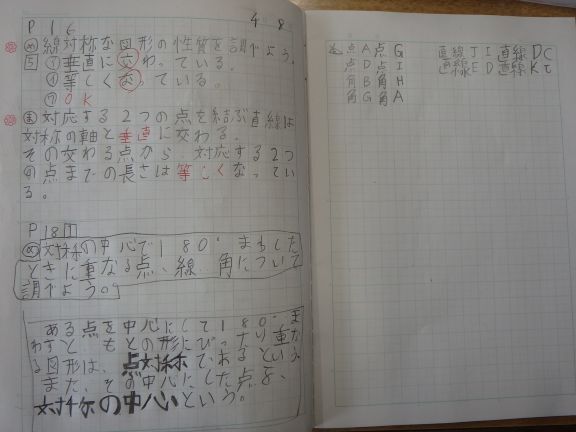 P16 4 8
め 線対称な図形の性質を調べよう。
5 ア 垂直に交わっている。
イ 等しくなっている。
ウ OK
ま 対応する2つの点を結ぶ直線は
対称の軸と垂直に交わる。
その交わる点から、対応する2つ
の点までの長さは等しくなってい
る。
P18 1
め 対称の中心で180°まわした
ときに重なる点、線、角について
調べよう。
ある点を中心にして180°ま
わすと、もとの形にぴったり重な
る図形は、点対称であるという
また、その中心にした点を、
対称の中心という。
点A 点G 直線JI 直線DC
点D 点I 直線ED 直線
角B 角H
角G 角A